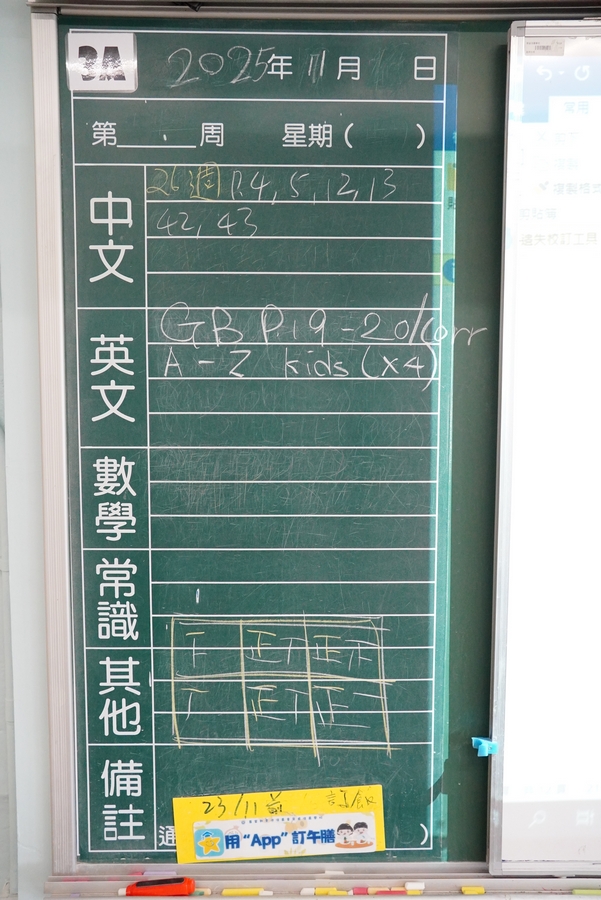 3A
2025年 11月 日
第 周 星期( )
中文
26週 P.4, 5, 12, 13
42, 43
英文
GB P.19-20/corr
A - Z kids (x4)
數學
常識
其他
正
正
備註
23/11前 訂飯
用"App"訂午膳
通 )
常用
複製格式
遺失校訂工具